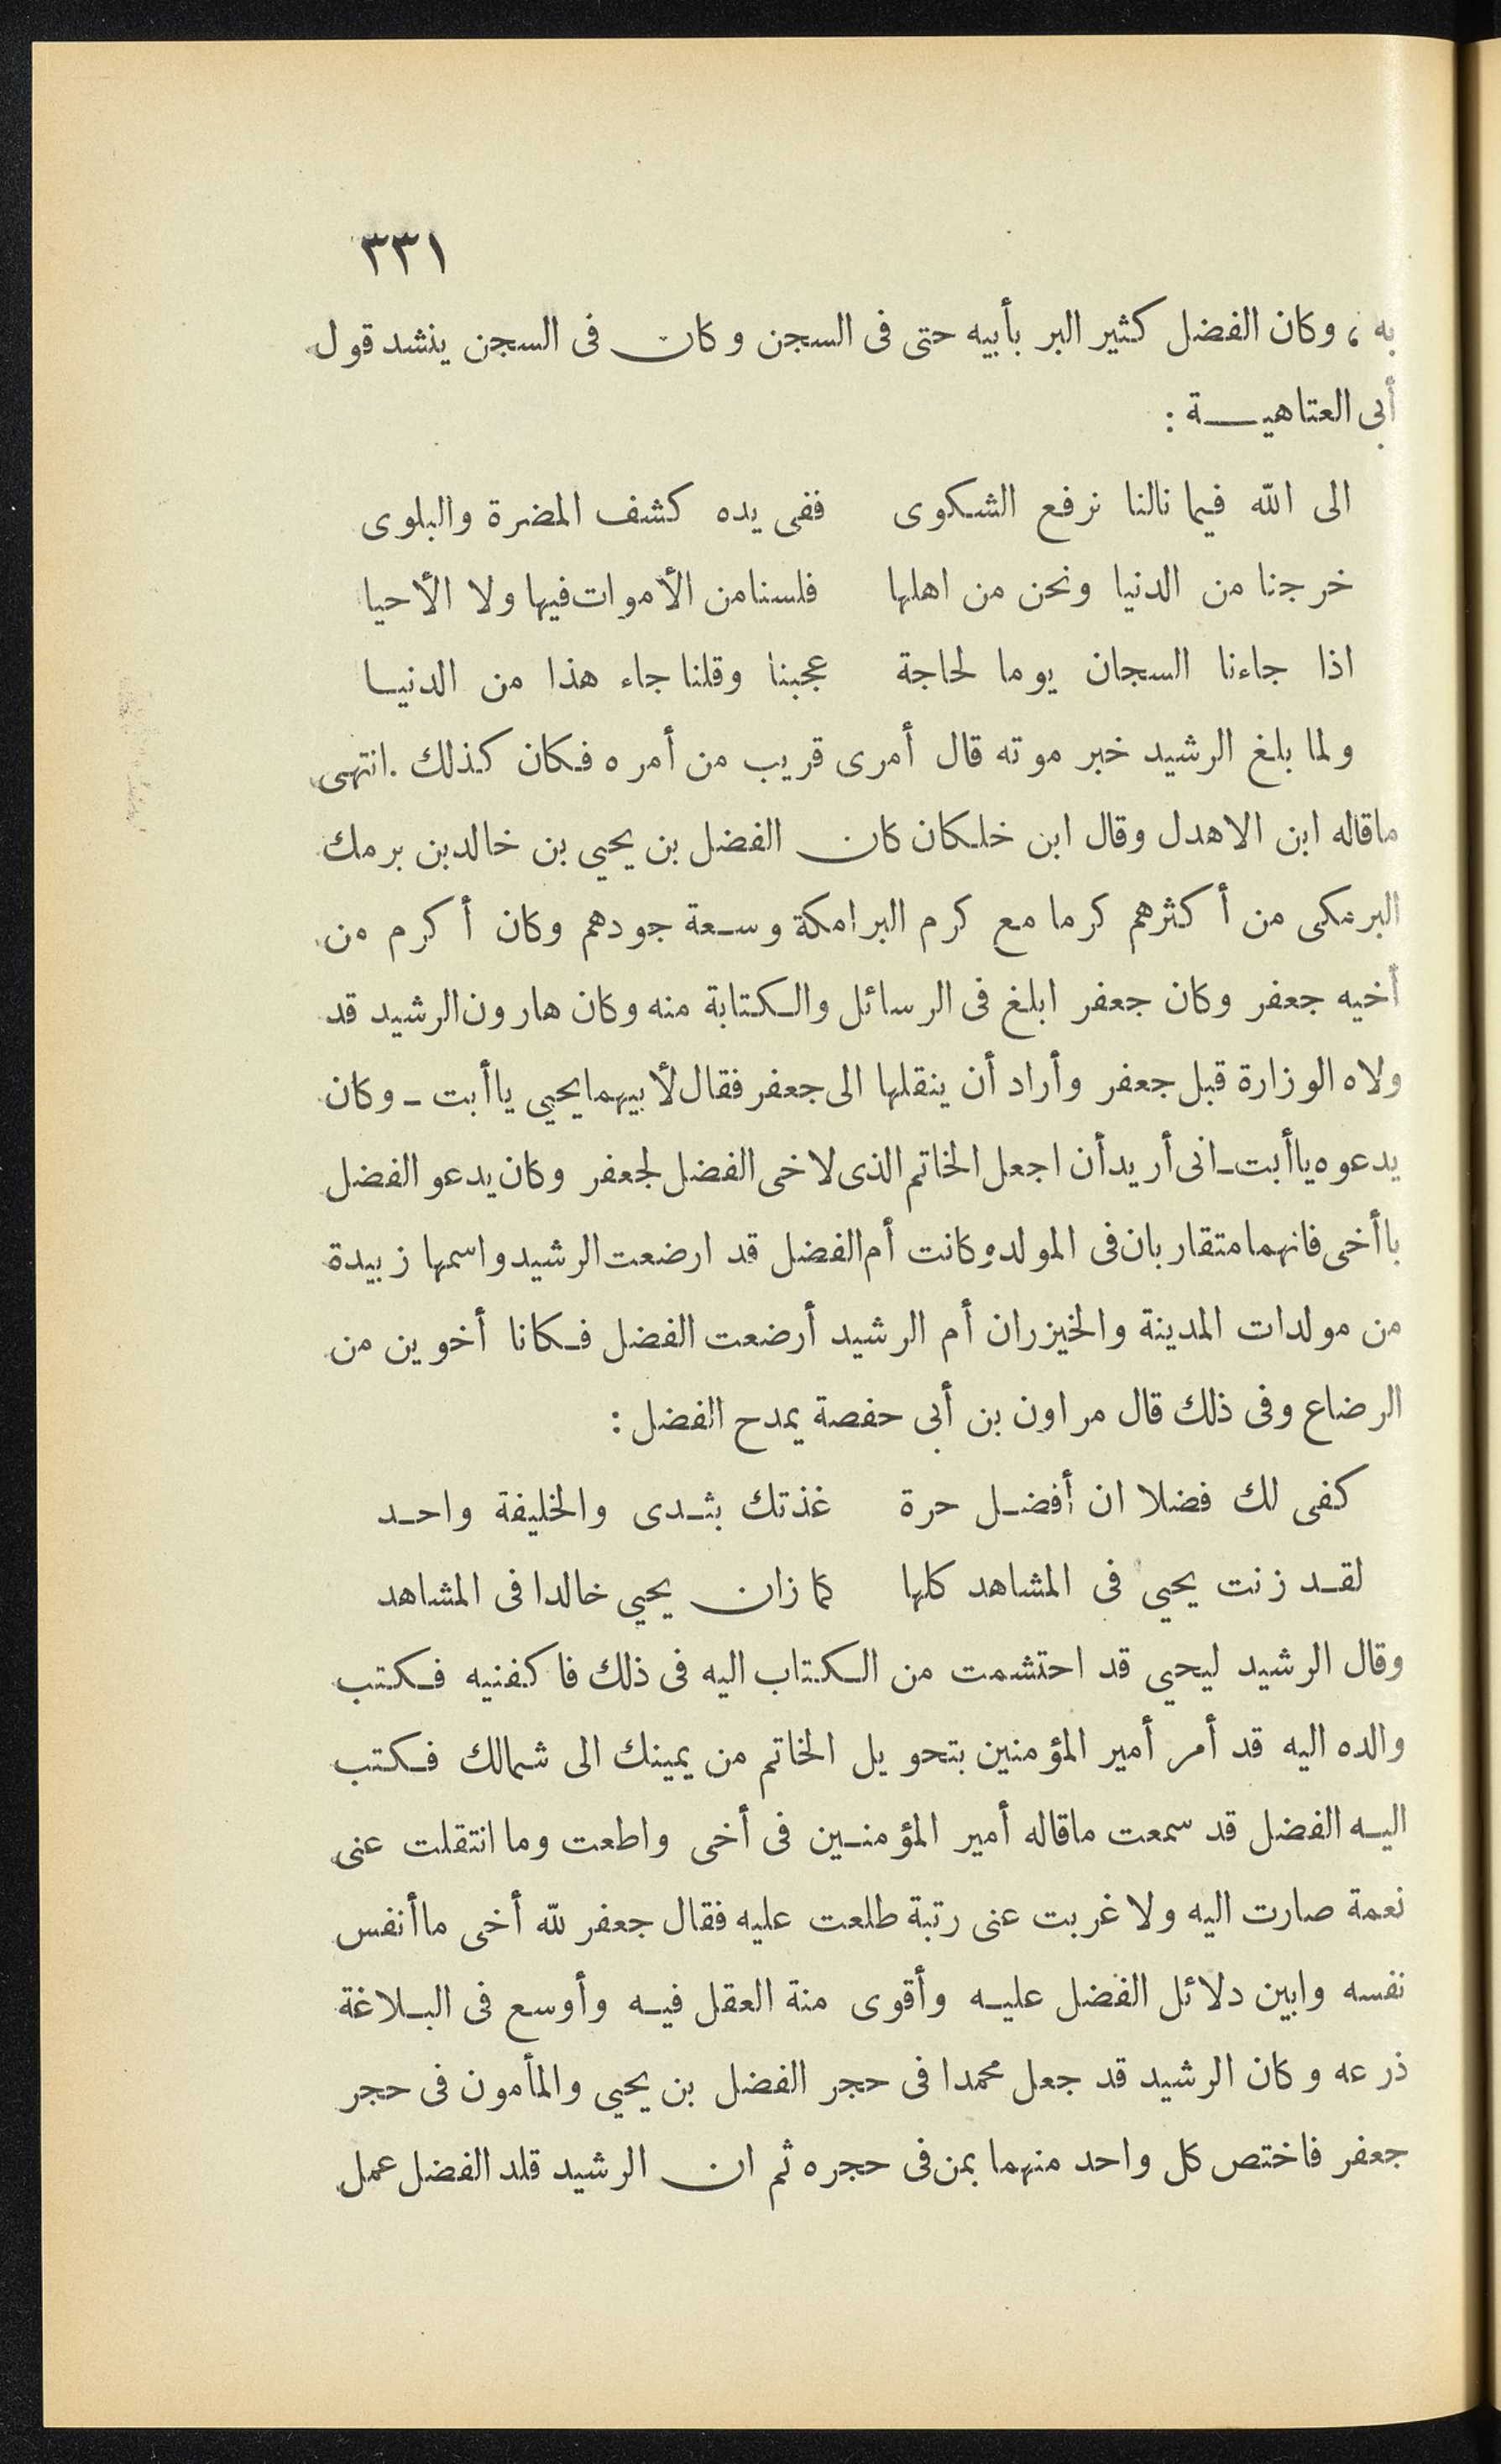 ٣٣١
به ، وكان الفضل كثير البر بأبيه حتى فى السجن وكان فى السجن ينشد قول
أبى العتاهيــة :
الى الله فيما نالنا نرفع الشكوى ففى يده كشف المضرة والبلوى
خرجنا من الدنيا ونحن من اهلها فلسنا من الأموات فيها ولا الأحيا
اذا جاءنا السجان يوما لحاجة عجبنا وقلنا جاء هذا من الدنيـا
ولما بلغ الرشيد خبر موته قال أمرى قريب من أمره فكان كذلك . انتهى
ماقاله ابن الاهدل وقال ابن خلكان كان الفضل بن يحيى بن خالد بن برمك
البرمكى من أكثرهم كرما مع كرم البرامكة وسـعة جودهم وكان أكرم من
أخيه جعفر وكان جعفر ابلغ فى الرسائل والكتابة منه وكان هارون الرشيد قد
ولاه الوزارة قبل جعفر وأراد أن ينقلها الى جعفر فقال لأبيهما يحيى ياأبت ـ وكان
يدعوه ياأبت ـ انى أريد أن اجعل الخاتم الذى لاخى الفضل لجعفر وكان يدعو الفضل
باأخى فانهما متقاربان فى المولد وكانت أم الفضل قد ارضعت الرشيد واسمها زبيدة
من مولدات المدينة والخيزران أم الرشيد أرضعت الفضل فـكانا أخوين من
الرضاع وفى ذلك قال مراون بن أبى حفصة يمدح الفضل :
كفى لك فضلا ان أفضـل حرة غذتك بثـدى والخليفة واحـد
لقـد زنت يحيى فى المشاهد كلها كما زان يحيى خالدا فى المشاهد
وقال الرشيد ليحيى قد احتشمت من الـكتاب اليه فى ذلك فاكفنيه فـكتب
والده اليه قد أمر أمير المؤمنين بتحويل الخاتم من يمينك الى شمالك فـكتب
اليـه الفضل قد سمعت ماقاله أمير المؤمنـين فى أخى واطعت وما انتقلت عنى
نعمة صارت اليه ولا غربت عنى رتبة طلعت عليه فقال جعفر لله أخى ماأنفس
نفسه وابين دلائل الفضل عليـه وأقوى منة العقل فيـه وأوسع فى البـلاغة
ذرعه وكان الرشيد قد جعل محمدا فى حجر الفضل بن يحيى والمأمون فى حجر
جعفر فاختص كل واحد منهما بمن فى حجره ثم ان الرشيد قلد الفضل عمل